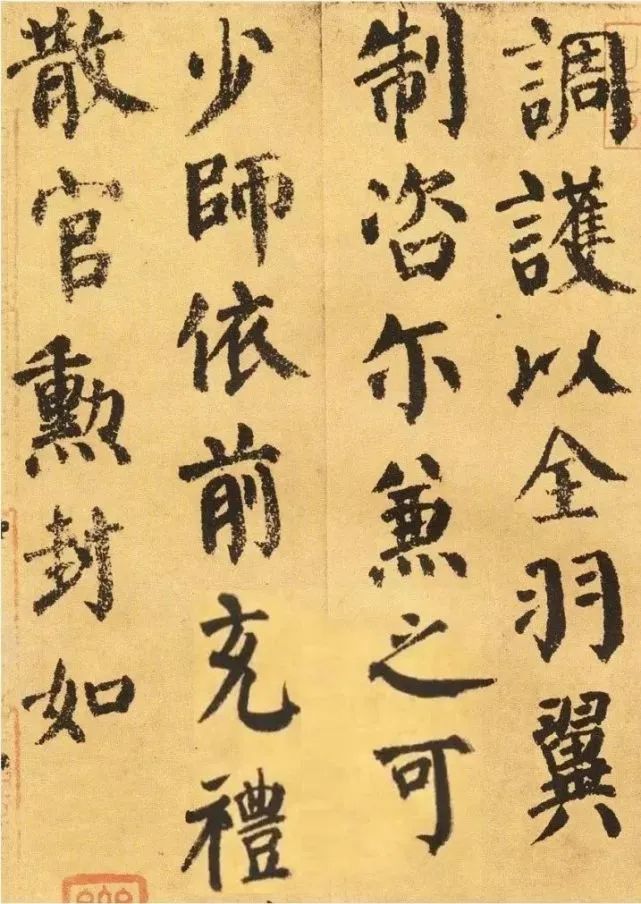 調護以全羽翼
制咨尔兼之可
少師依前充禮
散官勲封如